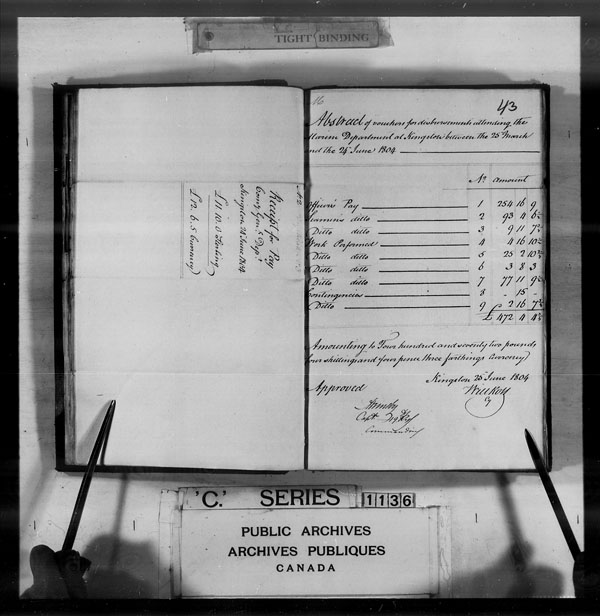 TIGHT BINDING
No 2
Receipt for Pay
Comy Genl's Dept
Kingston 24 June 1804
£11. 10. 0 Sterling
£12. 6. 5 Currency
16
43
Abstract of vouchers for disbursements attending the
Marine Department at Kingston between the 25 March
and the 24th June 1804
No. Amount
Officers Pay 1 254 16 9
Seamens ditto 2 93 4 6
Ditto ditto 3 9 11 7
Work Performed 4 4 16 10
Ditto ditto 5 25 2 10
Ditto ditto 6 3 8 3
Ditto ditto 7 77 11 9
Contingencies 8 - 15 -
Ditto 9 2 16 7
£ 472 4 4
Amounting to Four hundred and seventy two pounds
four shillings and four pence three farthings Currency
Kingston 25 June 1804
Approved
Capt
Commanding
'C.' SERIES 1136
PUBLIC ARCHIVES
ARCHIVES PUBLIQUES
CANADA